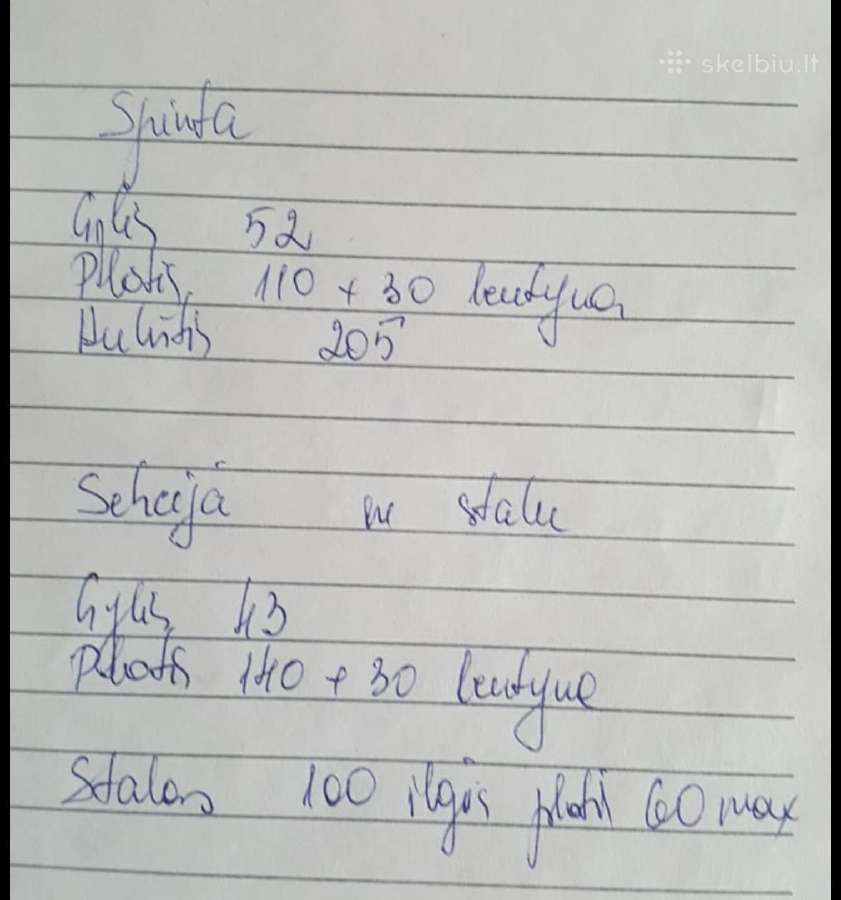 skelbiu.lt
Spinta
Gylis 52
Plotis 110 + 30 lentyna
Aukštis 205
Sekcija su stalu
Gylis 43
Plotis 140 + 30 lentyna
Stalas 100 ilgis plotis 60 max